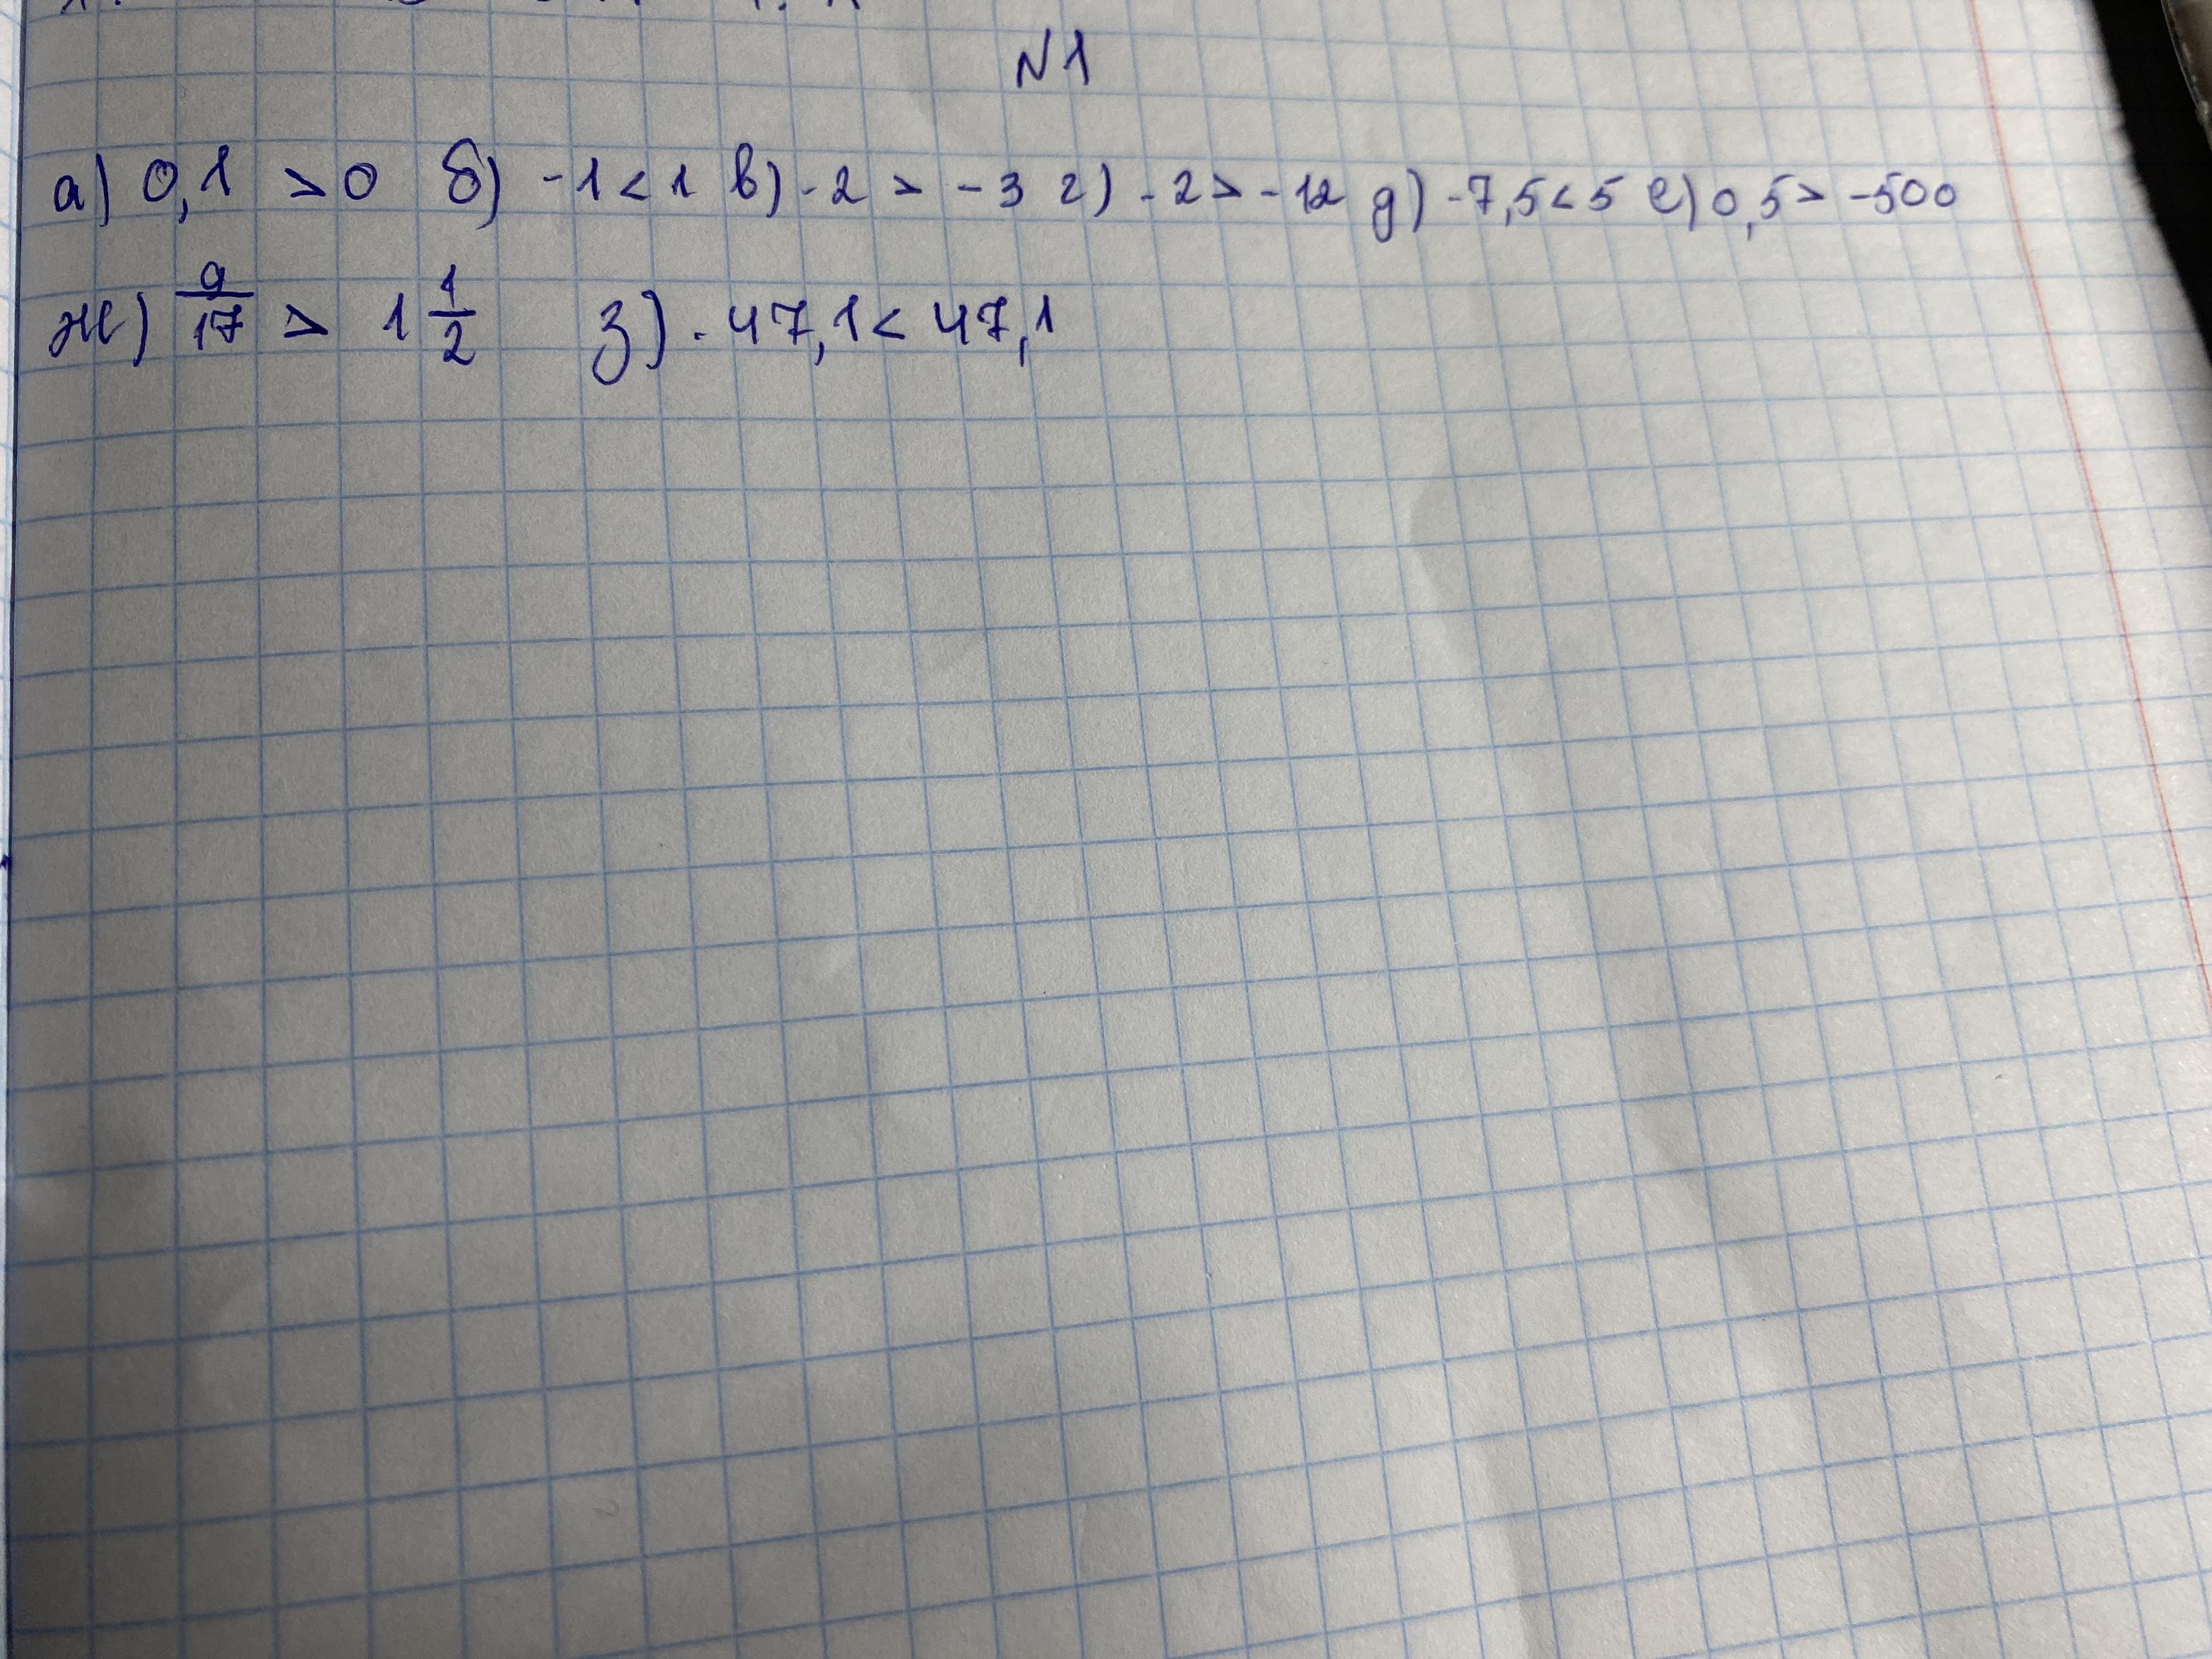 N1
а) 0,1 > 0 б) -1 < 1 в) -2 > -3 г) -2 > -12 д) -7,5 < 5 е) 0,5 > -500
ж) 9/17 > 1 1/2 з) -47,1 < 47,1